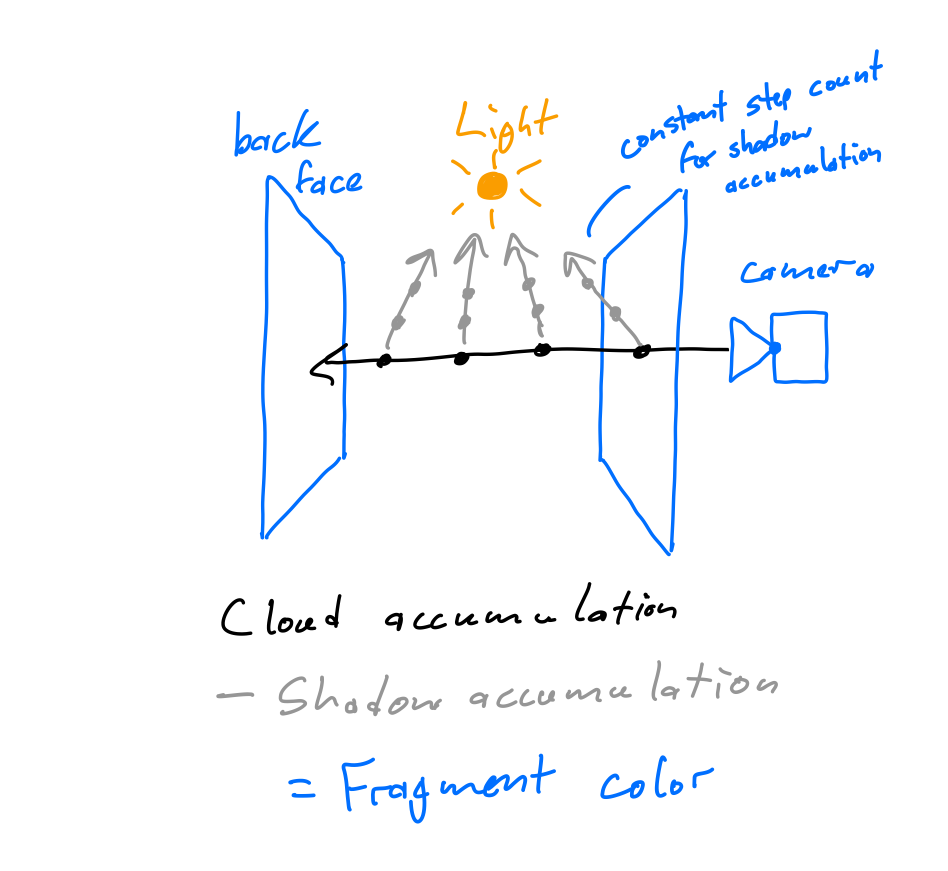 back
face
Light
constant step count
for shadow
accumulation
Camera
Cloud accumulation
— Shadow accumulation
= Fragment color